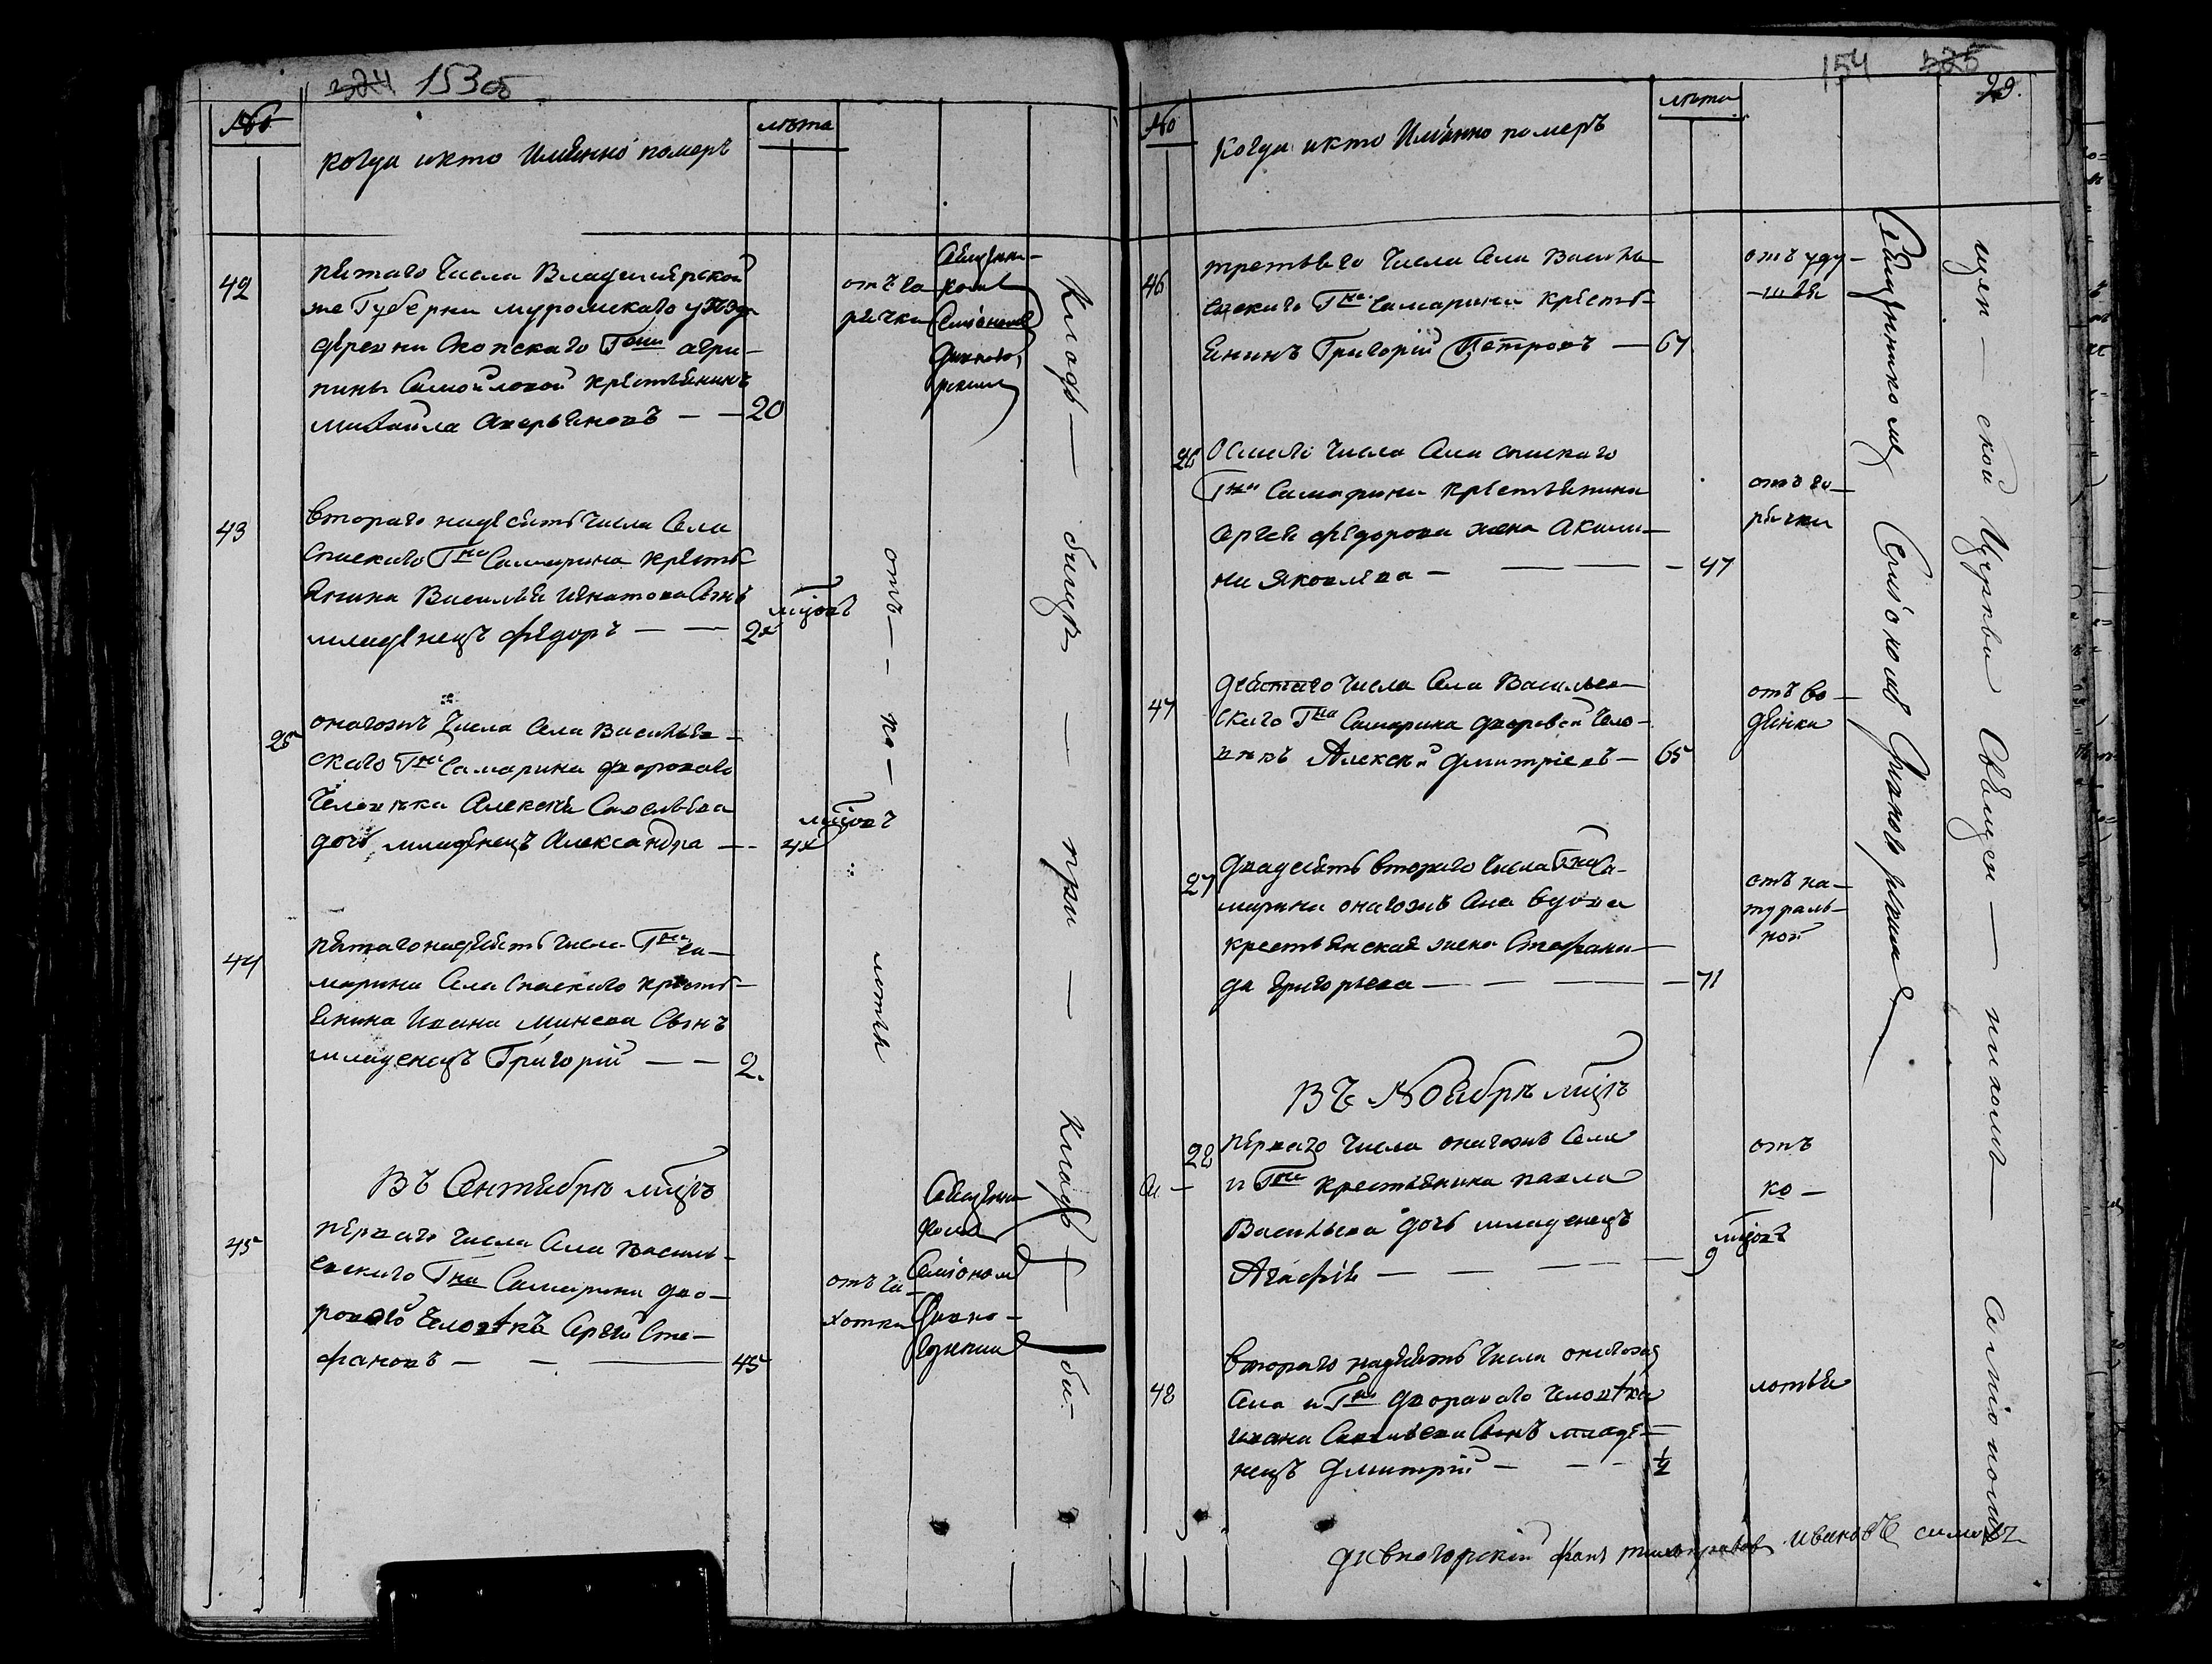 324 153об
№
когда и кто Имянно померъ
лѣта
42
пятаго Числа Владимирской
же Губерни муромскаго уѣзда
деревни Гжи агри-
пины Самойловой крестьянинъ
михайла Аверьяновъ — — 20
отъ го-
рячки
Священни-
комъ
Симіономъ
Дивногорскимъ
43
втораго надесять числа Села
Спаскаго Гна Самарина кресть-
янина Василья Игнатова Сынъ
младенецъ Федоръ — — 2х
мцовъ
25
онагожъ Числа Села Васильев-
скаго Гна Самарина двороваго
Человѣка Алексѣя Савельева
дочь младенецъ Александра — 4х
мцовъ
44
пятагонадесять числа Гна Са-
марина Села Спаскаго кресть-
янина Ивана Минеева Сынъ
младенецъ Григорій — — 2.
отъ — по — лотья
Въ Сентябрѣ мцѣ
45
перваго Числа Села Василь-
евскаго Гна Самарина дво-
ровой Человѣкъ Сергей Сте-
фановъ — — — 45
отъ ча-
хотки
Священни-
комъ
Симіономъ
Дивно-
горскимъ
Кладбище при Кладби-
154 325
29.
№
Когда и кто Имянно померъ
лѣта
46
третьяго Числа Села Василь-
евскаго Гна Самарина кресть-
янинъ Григорій Петровъ — 67
отъ уду-
шья
26
Осмаго Числа Села спаскаго
Гна Самарина крестьянина
Сергея Федорова жена Акили-
на Яковлева — — — 47
отъ го-
рячки
47
девятаго Числа Села Васильев-
скаго Гна Самарина дворовой чело-
вѣкъ Алексѣй Дмитріевъ — 65
отъ во-
дянки
27
двадесять втораго Числа Гна Са-
марина онагожъ Села вдова
крестьянская жена Стефани-
да Григорьева — — — 71
отъ на-
тураль-
ной
Въ Ноябрѣ мцѣ
28
перваго Числа онагожъ Села
и Гна крестьянина павла
Васильева дочь младенецъ
Агафія — — — 9
мцовъ
отъ
ко-
48
втораго надесять Числа онагожъ
Села и Гна двороваго Человѣка
ивана Савельева Сынъ младе-
нецъ Дмитрій — — ½
лотья
Священникомъ Симіономъ Дивногорскимъ
щен — ской Церкви Священ — никомъ — Симіономъ
дивногорскій ивановъ